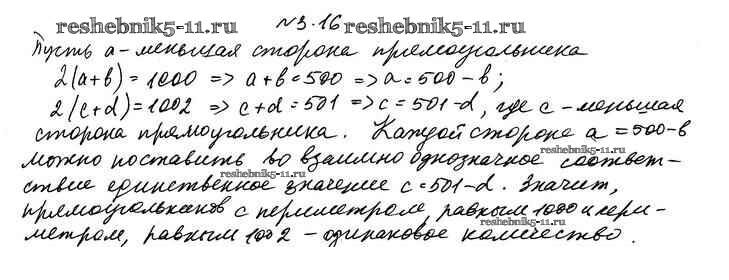 reshebnik5-11.ru №3.16 resheb​nik5-11.ru
Пусть a - меньшая сторона прямоугольника
2(a+b)=1000 => a+b=500 => a=500-b;
2(c+d)=1002 => c+d=501 => c=501-d, где c - меньшая
сторона прямоугольника. Каждой стороне a=500-b
reshebnik5-11.ru
можно поставить во взаимно однозначное соответ-
reshebnik5-11.ru
ствие единственное значение c=501-d. Значит,
прямоугольников с периметром, равным 1000 и пери-
reshebnik5-11.ru
метром, равным 1002 - одинаковое количество.